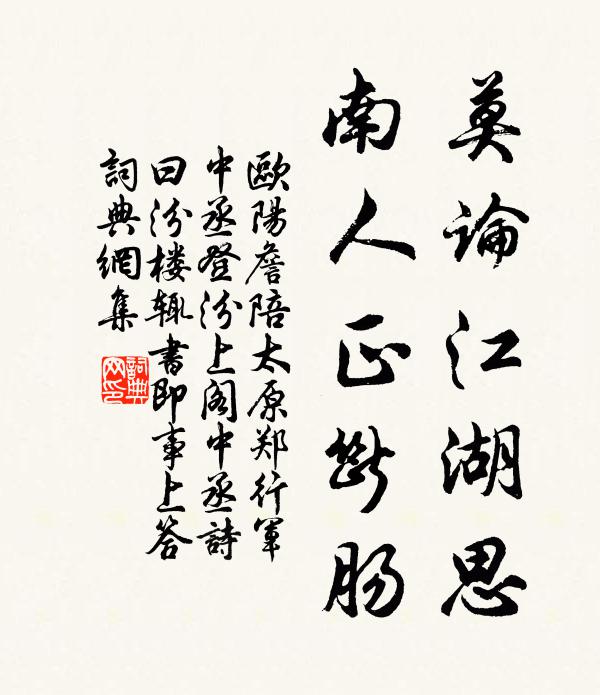 莫論江湖思
南人正斷腸
歐陽詹陪太原郑行軍
中丞登汾上阁中丞詩
曰汾楼辄書即事上答
詞典網集
詞典
网印